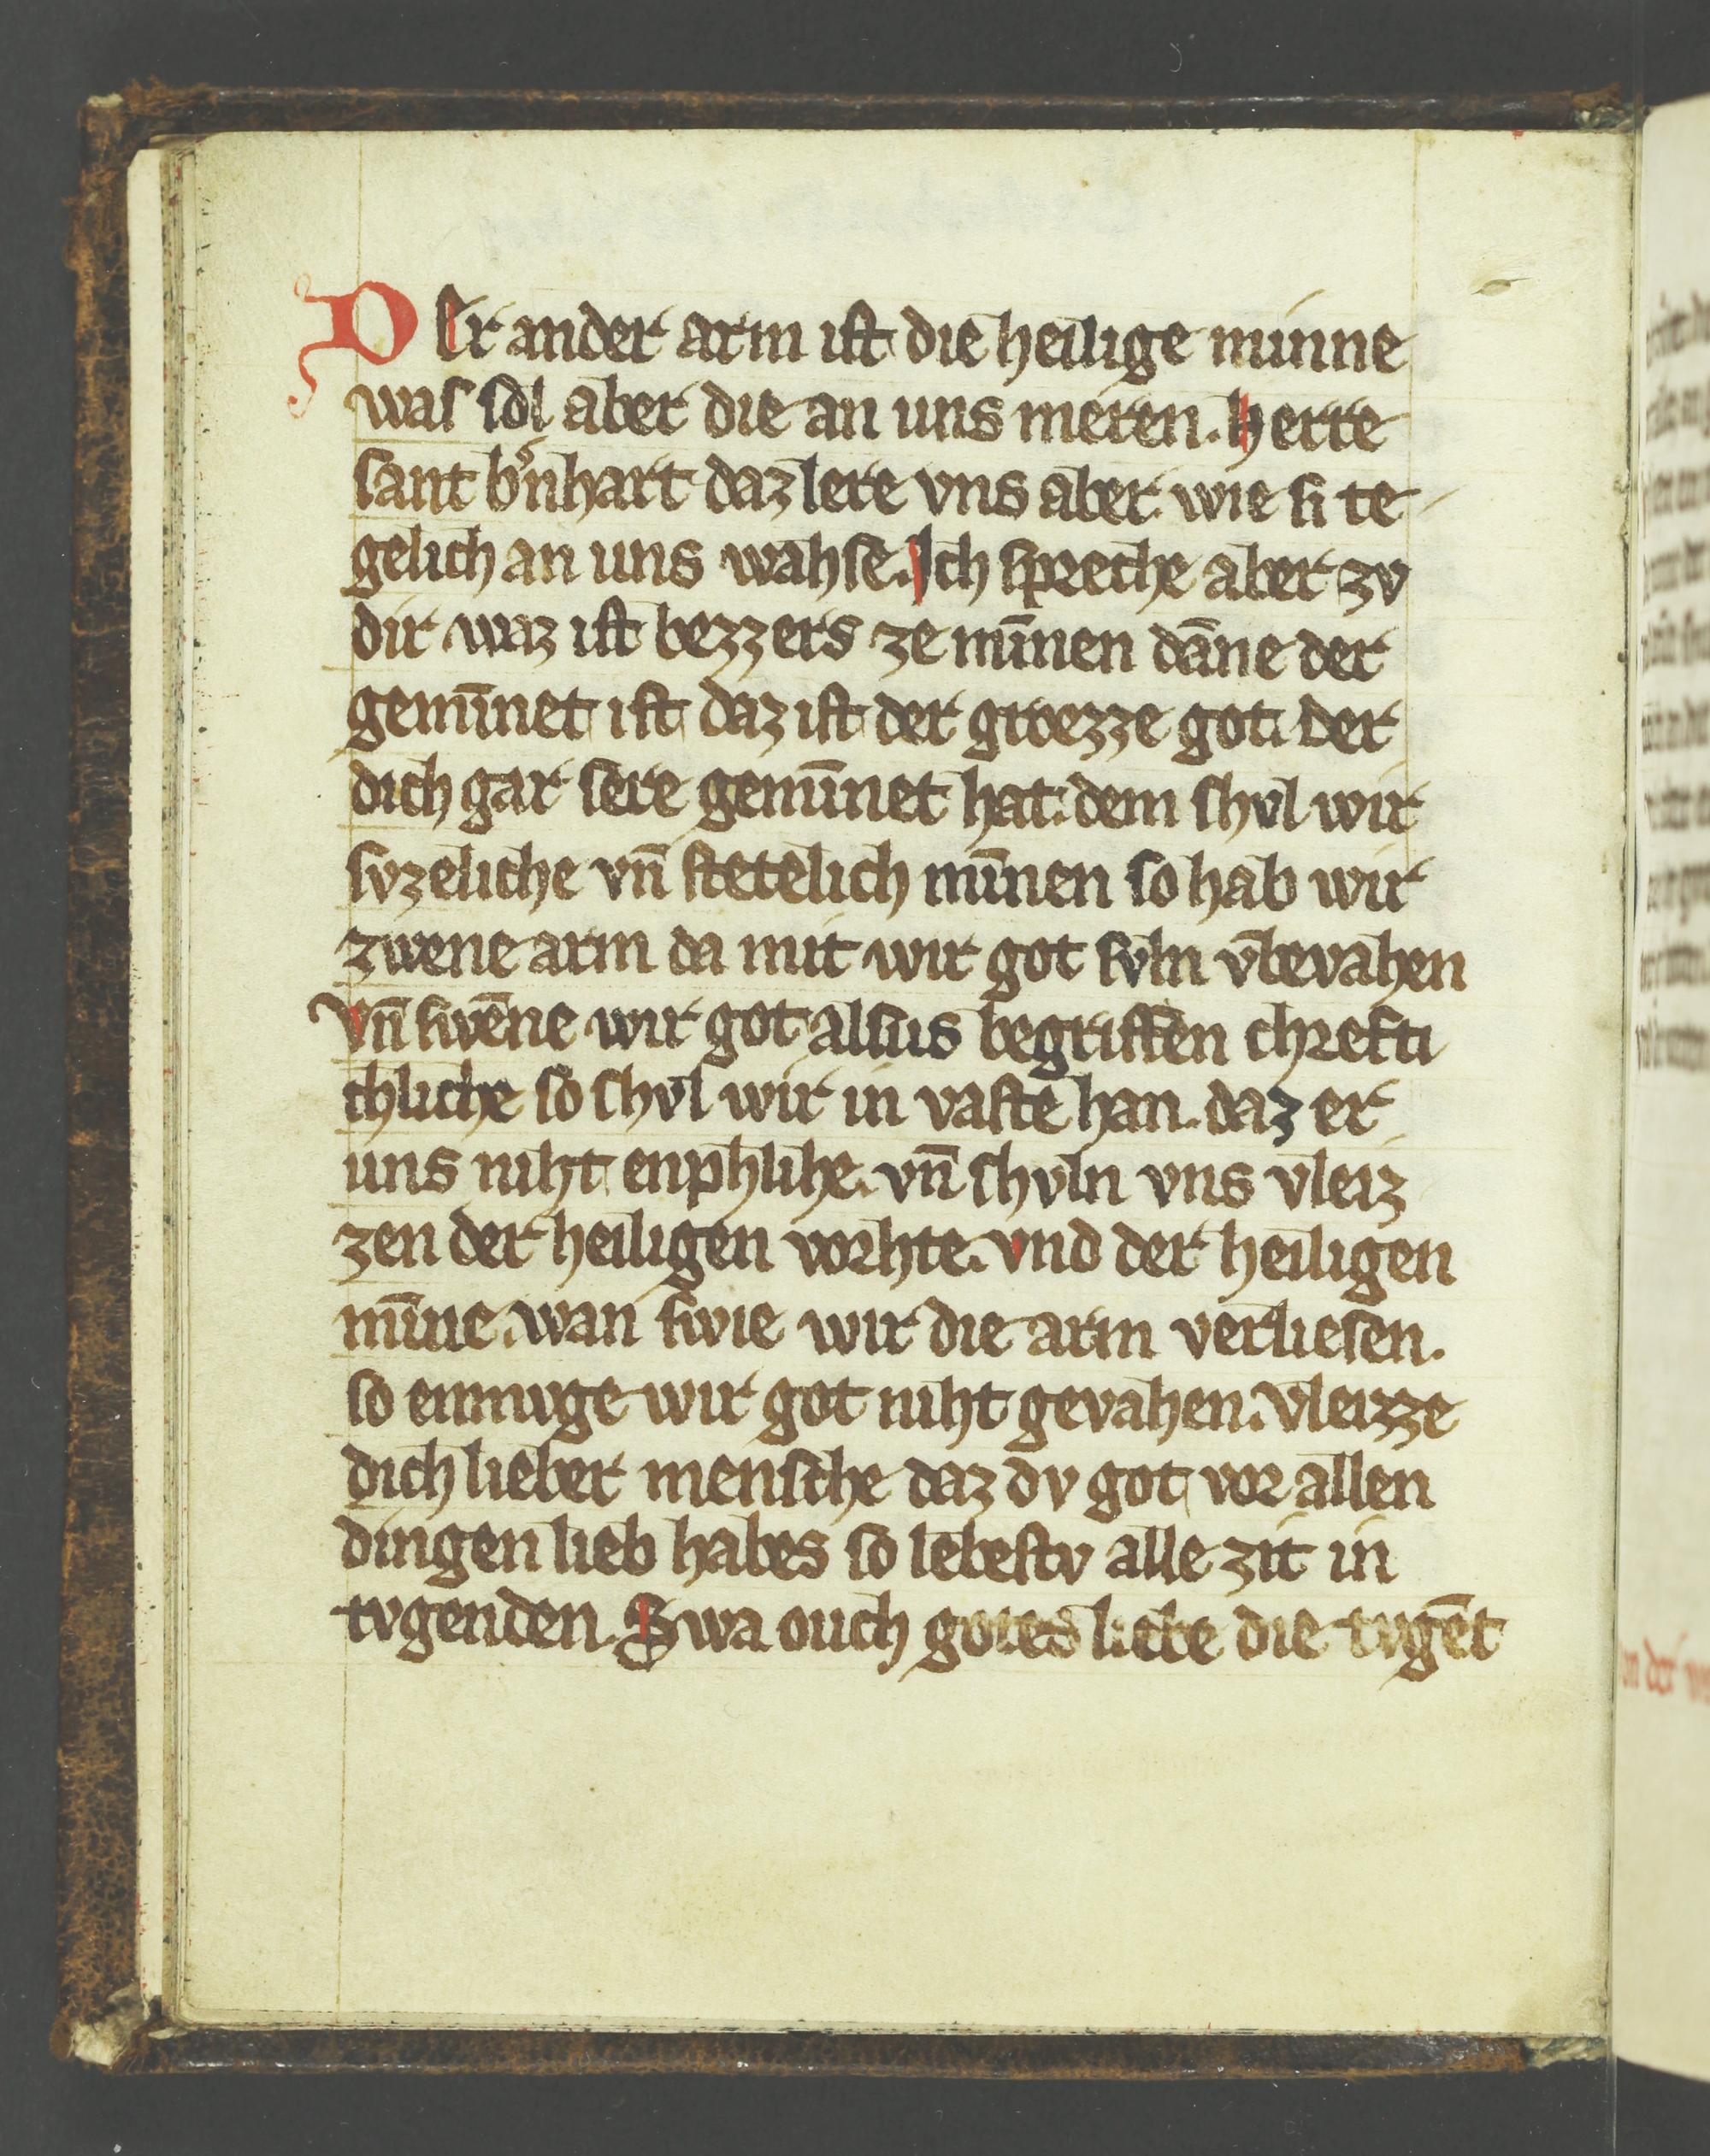 DEr ander arm iſt die heilige minne
waſ ſol aber die an uns meren. Herre
ſant b'nhart daz lere vns aber wie ſi te
gelich an uns wahſe. Ich ſpreche aber zv
dir waz iſt bezzers ze mīnen dāne der
gemīnet iſt daz iſt der grozze got. Der
dich gar ſere gemīnet hat. dem ſhvl wir
ſvzeliche vn̄ ſtetelich mīnen ſo hab wir
zwene arm da mit wir got ſvln v̄bevahen
vn̄ ſwēne wir got alſus begriffen chrefti
chliche ſo ſhvl wir in vaſte han. daz er
uns niht enphlihe. vn̄ ſhvln vns vleiz
zen der heiligen vorhte. vnd der heiligen
mīne. wan ſwie wir die arm verlieſen.
ſo enmuge wir got niht gevahen. vleizze
dich lieber menſche daz dv got vor allen
dingen lieb habes ſo lebeſtv alle zit in
tvgenden. Swa ouch gotes liebe die tvgēt